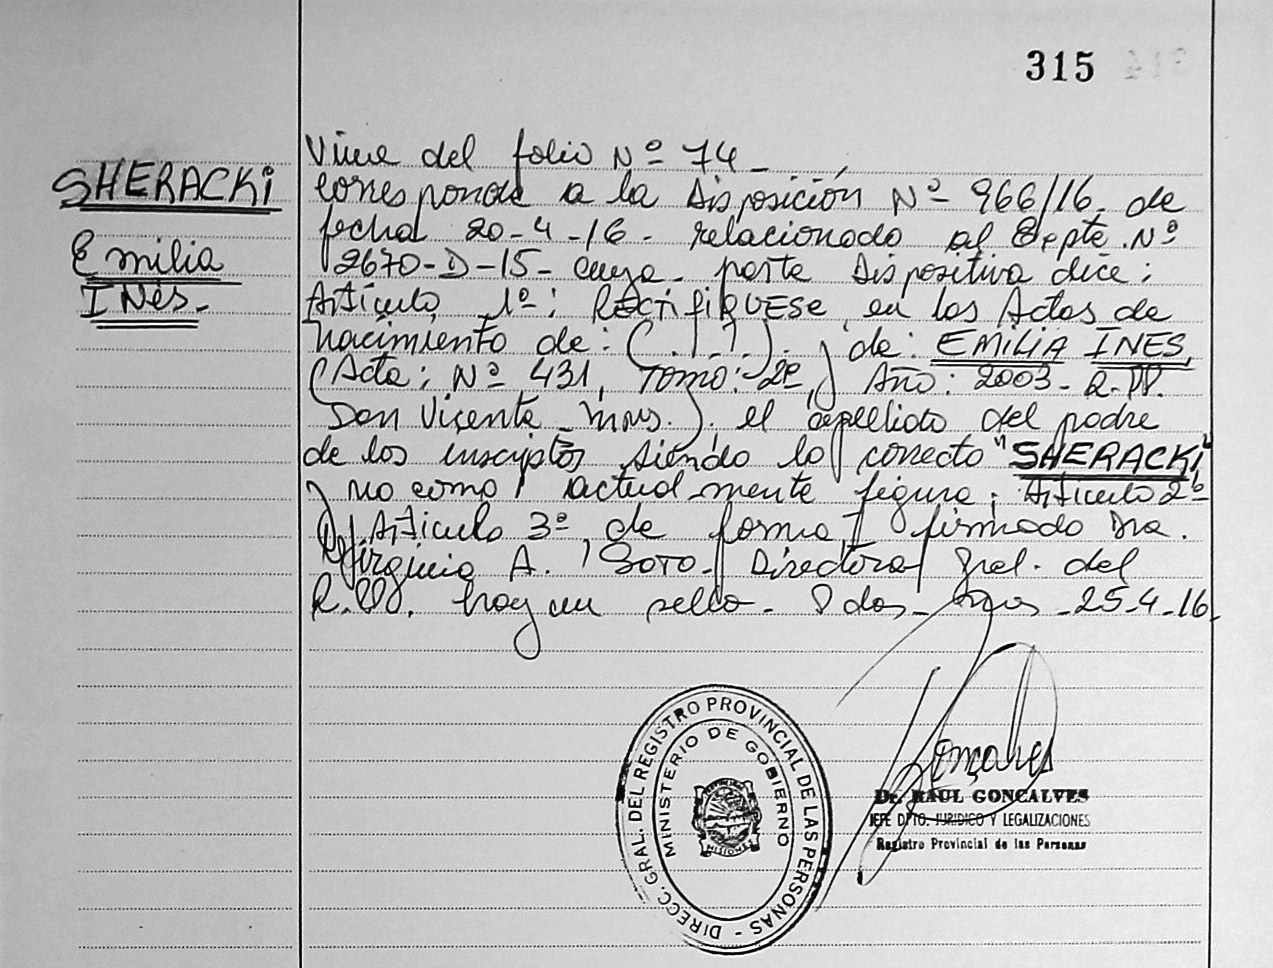 315
SHERACKi
Emilia
INés.
Viene del folio Nº 74
corresponde a la Disposición Nº 966/16 de
fecha 20-4-16. relacionado al Expte. Nº
2670-D-15- cuya parte dispositiva dice:
Artículo 1º: RECtifiQUESE en las Actas de
nacimiento de: (...!..!..). y de: EMILIA INES,
(Acta: Nº 431, Tomo: 2º, Año: 2003- R.PP.
Don Vicente Mnes.). el apellido del padre
de los inscriptos siendo lo correcto "SHERACKi"
y no como actualmente figura; Articulo 2º
y Articulo 3º, de forma, firmado Dra.
Virginia A. Soto. Directora Gral. del
R.PP. hay un sello. Pdas- Mnes -25-4-16.
DIRECC. GRAL. DEL REGISTRO PROVINCIAL DE LAS PERSONAS -
MINISTERIO DE GOBIERNO
MISIONES
Gonçalves
Dr. RAUL GONCALVES
JEFE DPTO. JURIDICO Y LEGALIZACIONES
Registro Provincial de las Personas